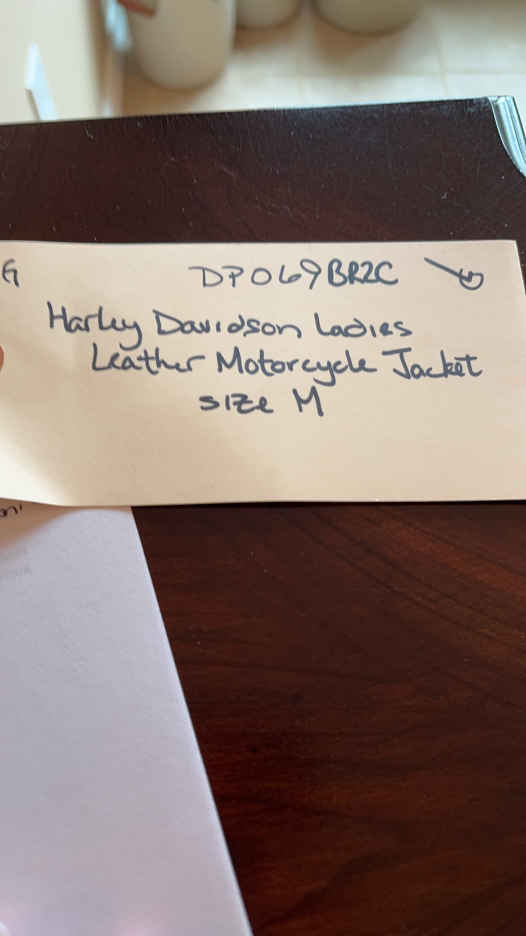 G DP069BR2C
Harley Davidson Ladies
Leather Motorcycle Jacket
size M